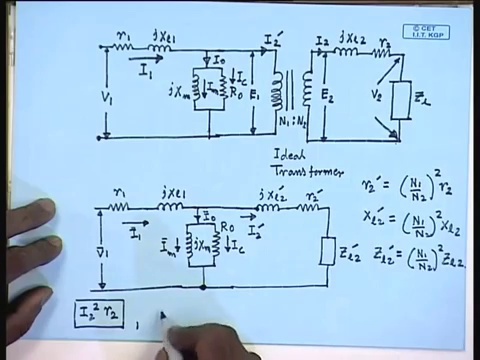 © CET
I.I.T. KGP
r₁ jxl1 I₂' I₂ jxl2 r₂
I₁ I₀
V₁ jxm Im Ic R₀ E₁ E₂ V₂ Zl
N₁ : N₂
Ideal
Transformer
r₁ jxl1 jxl2' r₂'
Ī₁ Ī₀ R₀ I₂'
V̄₁ Īm jxm Ic Zl2'
r₂' = (N₁/N₂)² r₂
xl2' = (N₁/N₂)² xl2
Zl2' = (N₁/N₂)² Zl2
I₂² r₂ ,